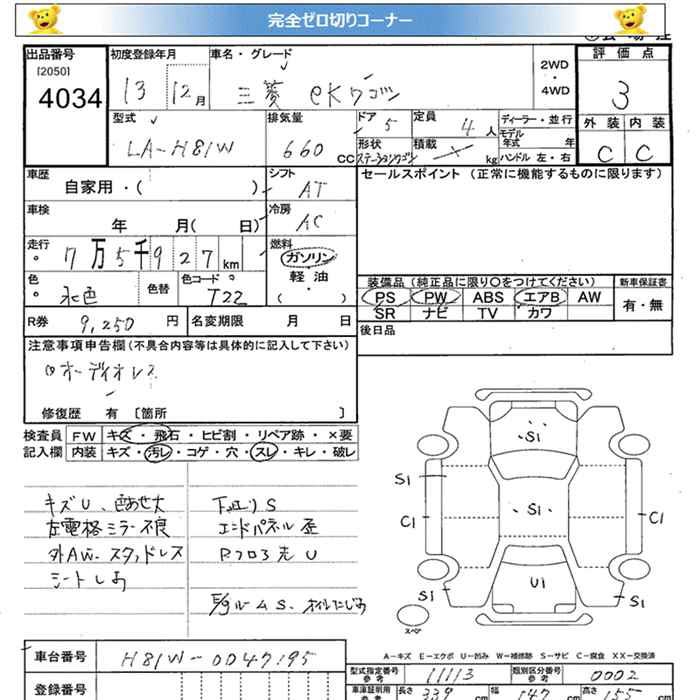 完全ゼロ切りコーナー
出品番号 初度登録年月 車名・グレード 2WD・4WD 評価点
[2050]
4034 13 12月 三菱 eKワゴン 3
型式 排気量 ドア 5 定員 4人 ディーラー・並行 外装 内装
LA-H81W 660 CC 形状 ステーションワゴン 積載 kg モデル年式 年 ハンドル 左・右 C C
車歴 シフト セールスポイント(正常に機能するものに限ります)
自家用・( ) AT
車検 冷房
年 月( 日) AC
走行 燃料
7万5千927km ガソリン
軽・油
( )
色 色替 色コード 装備品(純正品に限り〇をつけてください) 新車保証書
水色 T22 PS PW ABS エアB AW 有・無
SR ナビ TV カワ
R券 9,250円 名変期限 月 日 後日品
注意事項申告欄(不具合内容等は具体的に記入して下さい)
オーディオレス
修復歴 有 [箇所 ]
検査員 FW キズ・飛石・ヒビ割・リペア跡・×要
記入欄 内装 キズ・汚レ・コゲ・穴・スレ・キレ・破レ
キズU、色あせ大 下廻りS
左電格ミラー不良 エンドパネル歪
外AW、スタッドレス Rフロア先U
シートしみ
E/gルームS、オイルにじみ
S1
S1
C1 S1 C1
U1
S1 S1
スペア
A-キズ E-エクボ U-凹み W-補修跡 S-サビ C-腐食 XX-交換済
車台番号 H81W-0047195
型式指定番号 参考 11113 類別区分番号 参考 0002
登録番号 車庫証明用 参考 長さ 339cm 幅 147cm 高さ 155cm